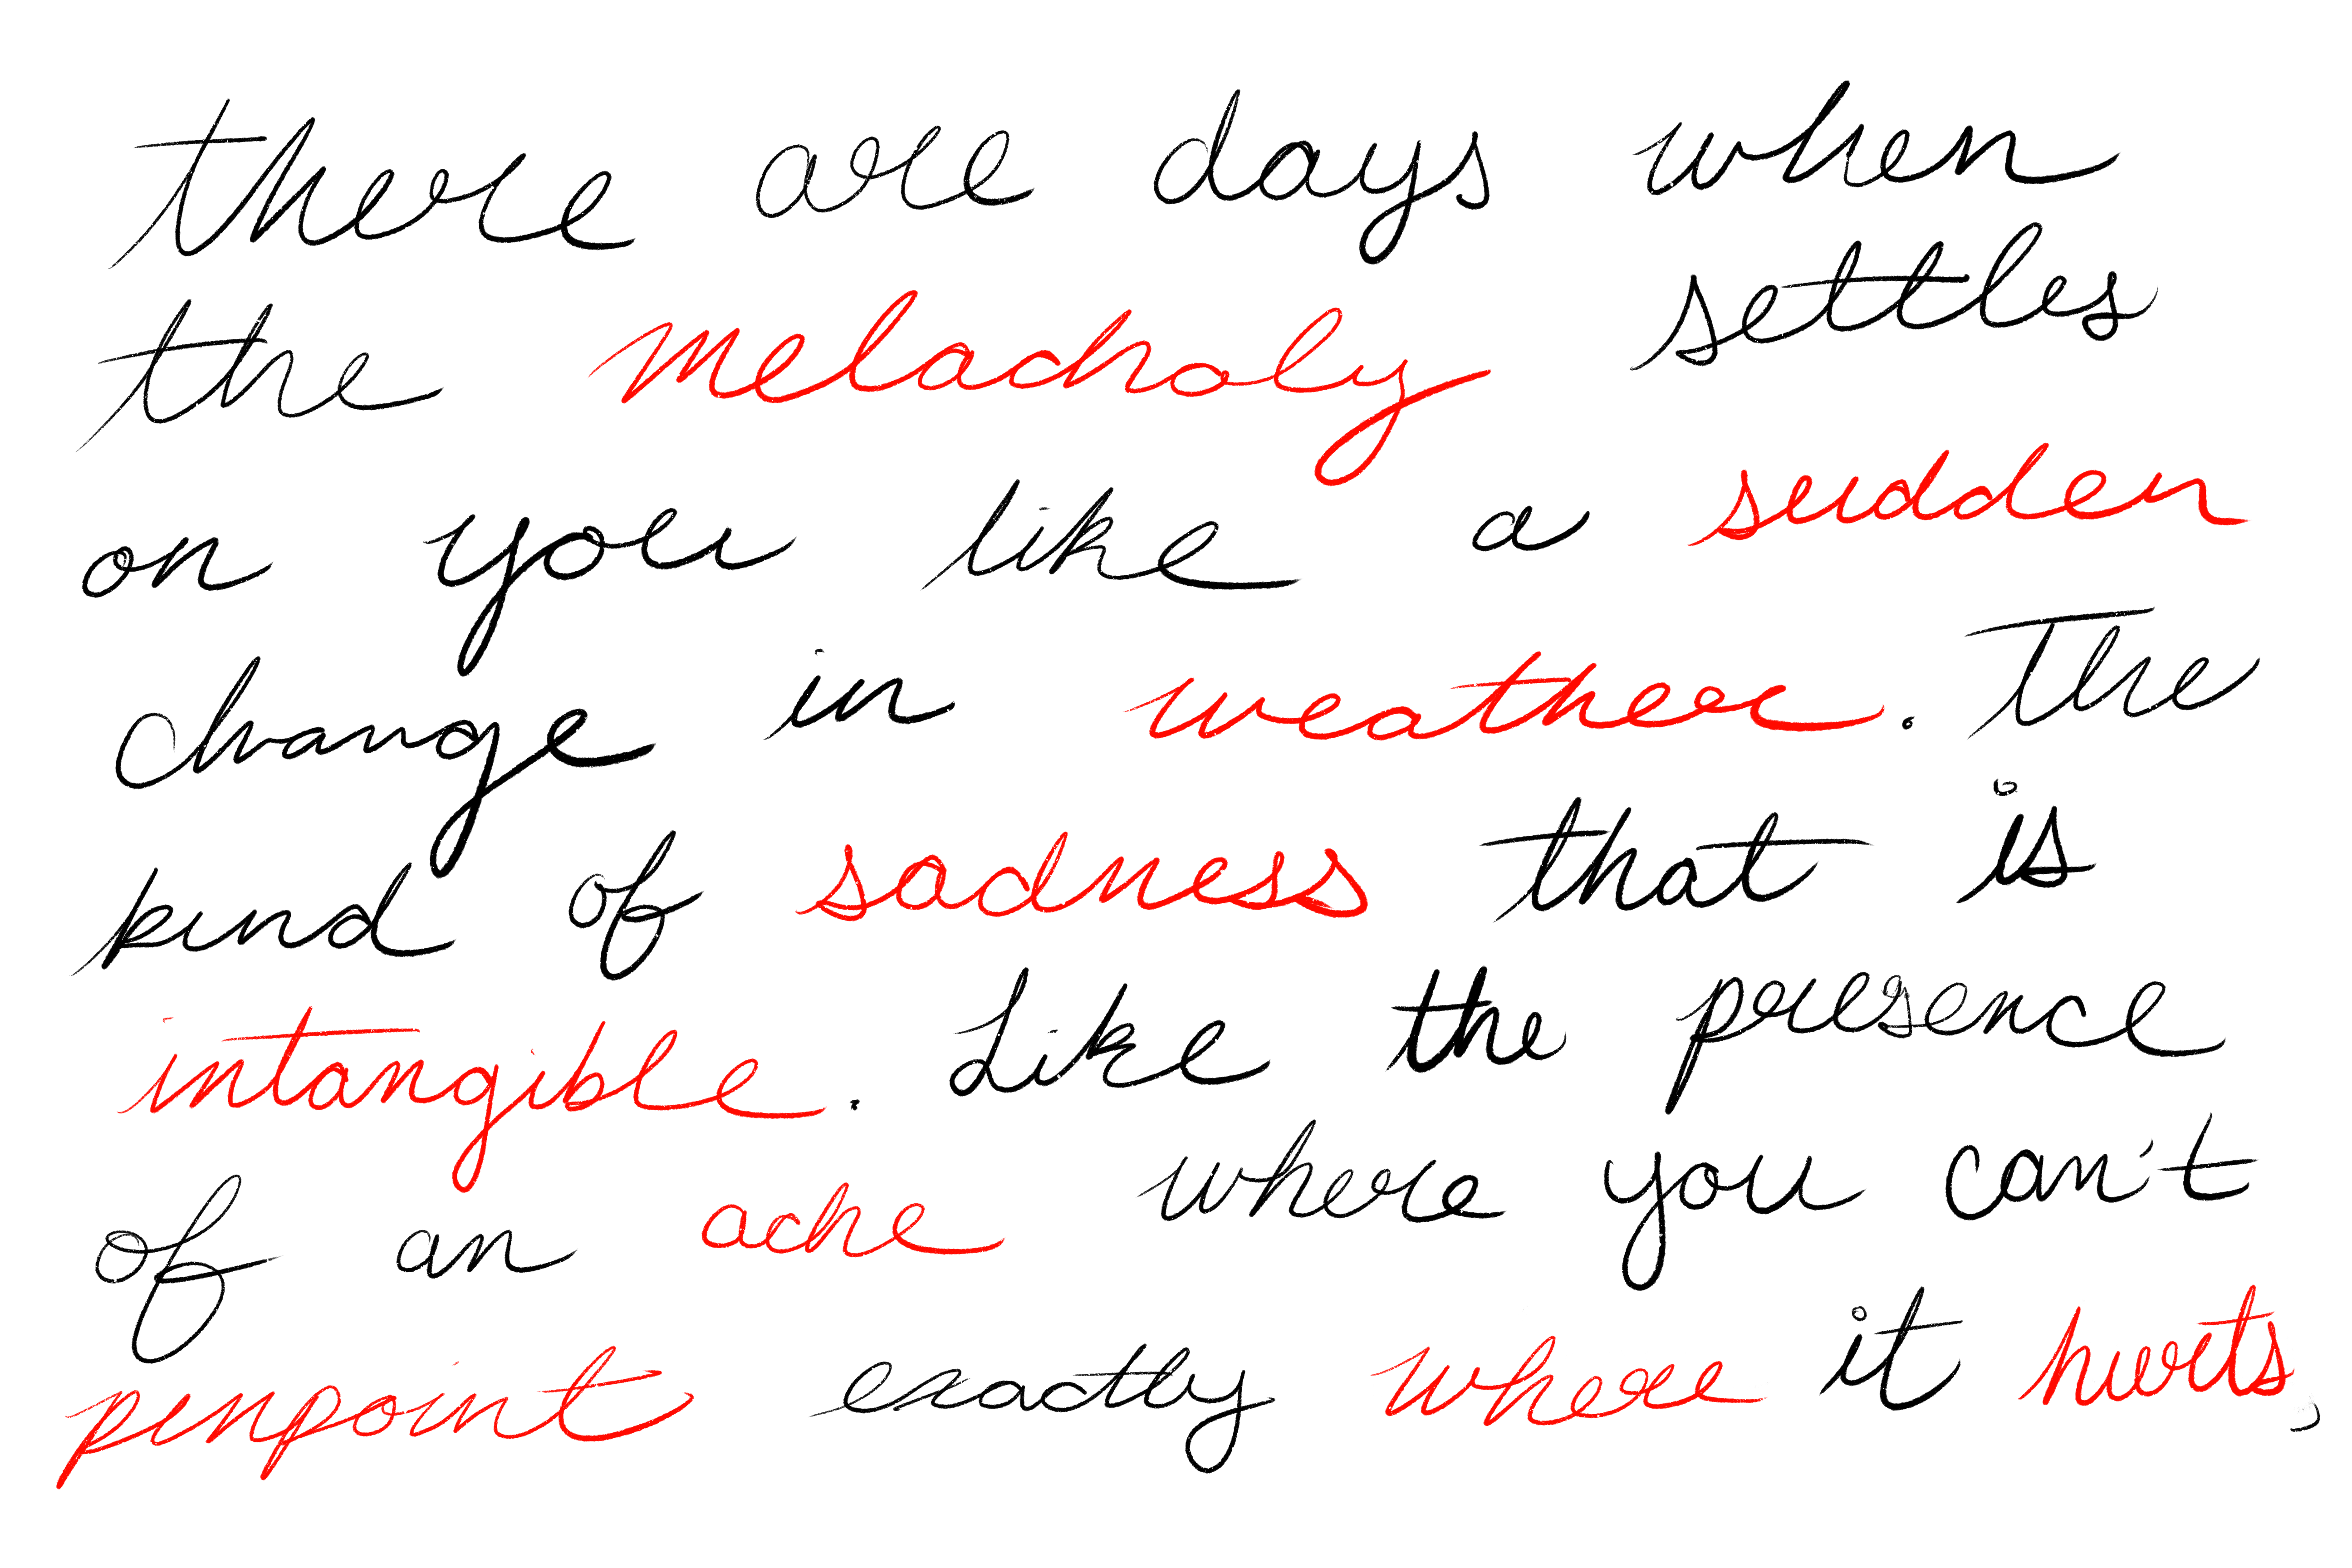 there are days when
the melacholy settles
on you like a sudden
change in weather. The
kind of sadness that is
intangible. Like the presence
of an ache where you can't
pinpoint exactly where it hurts,